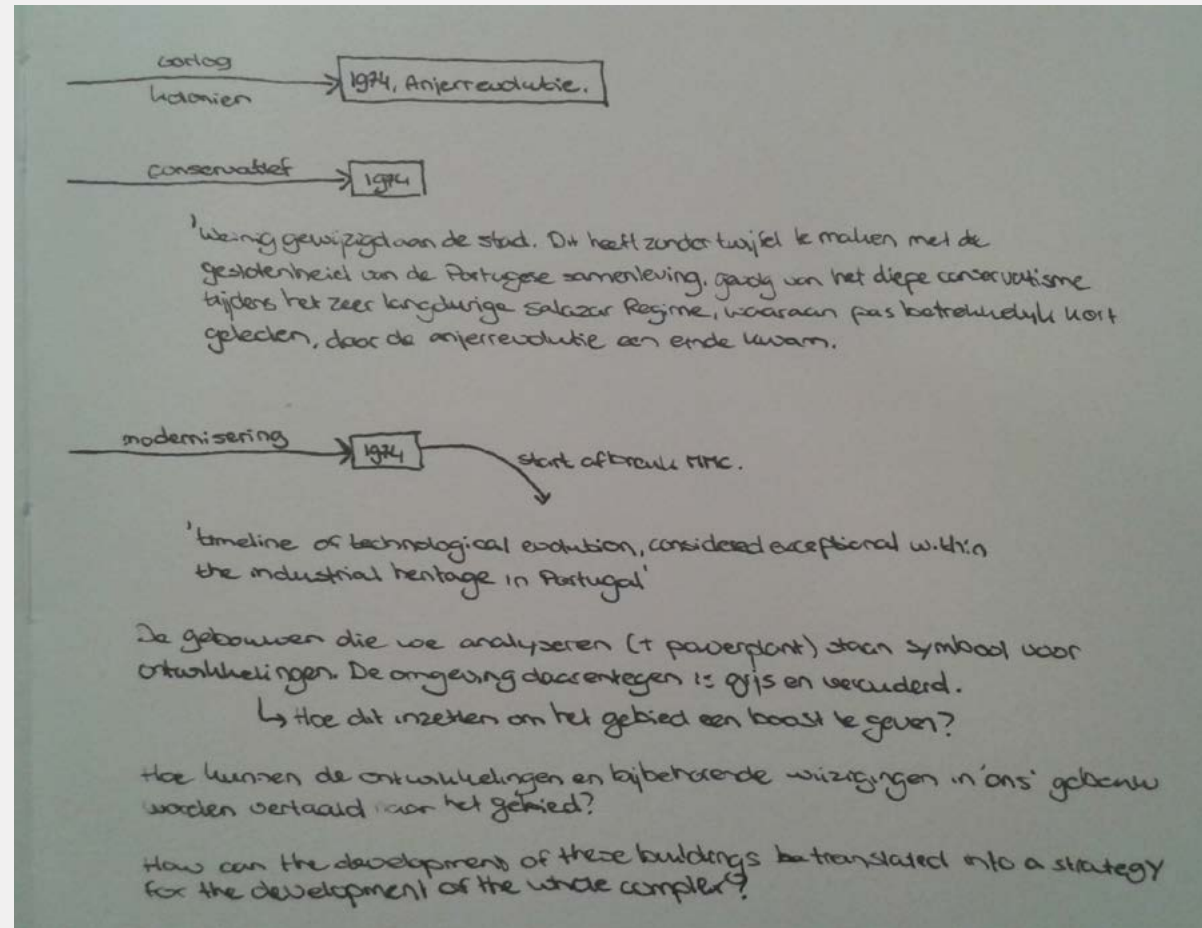 oorlog
kolonien
1974, Anjerrevolutie.
conservatief
1974
'Weinig gewijzigd aan de stad. Dit heeft zonder twijfel te maken met de
geslotenheid van de Portugese samenleving, gevolg van het diepe conservatisme
tijdens het zeer langdurige Salazar Regime, waaraan pas betrekkelijk kort
geleden, door de anjerrevolutie een einde kwam.
modernisering
1974
start afbraak MMC.
'timeline of technological evolution, considered exceptional within
the industrial heritage in Portugal'
De gebouwen die we analyseren (+ powerplant) staan symbool voor
ontwikkelingen. De omgeving daarentegen is grijs en verouderd.
↳ Hoe dit inzetten om het gebied een boost te geven?
Hoe kunnen de ontwikkelingen en bijbehorende wijzigingen in 'ons' gebouw
worden vertaald naar het gebied?
How can the development of these buildings be translated into a strategy
for the development of the whole complex?